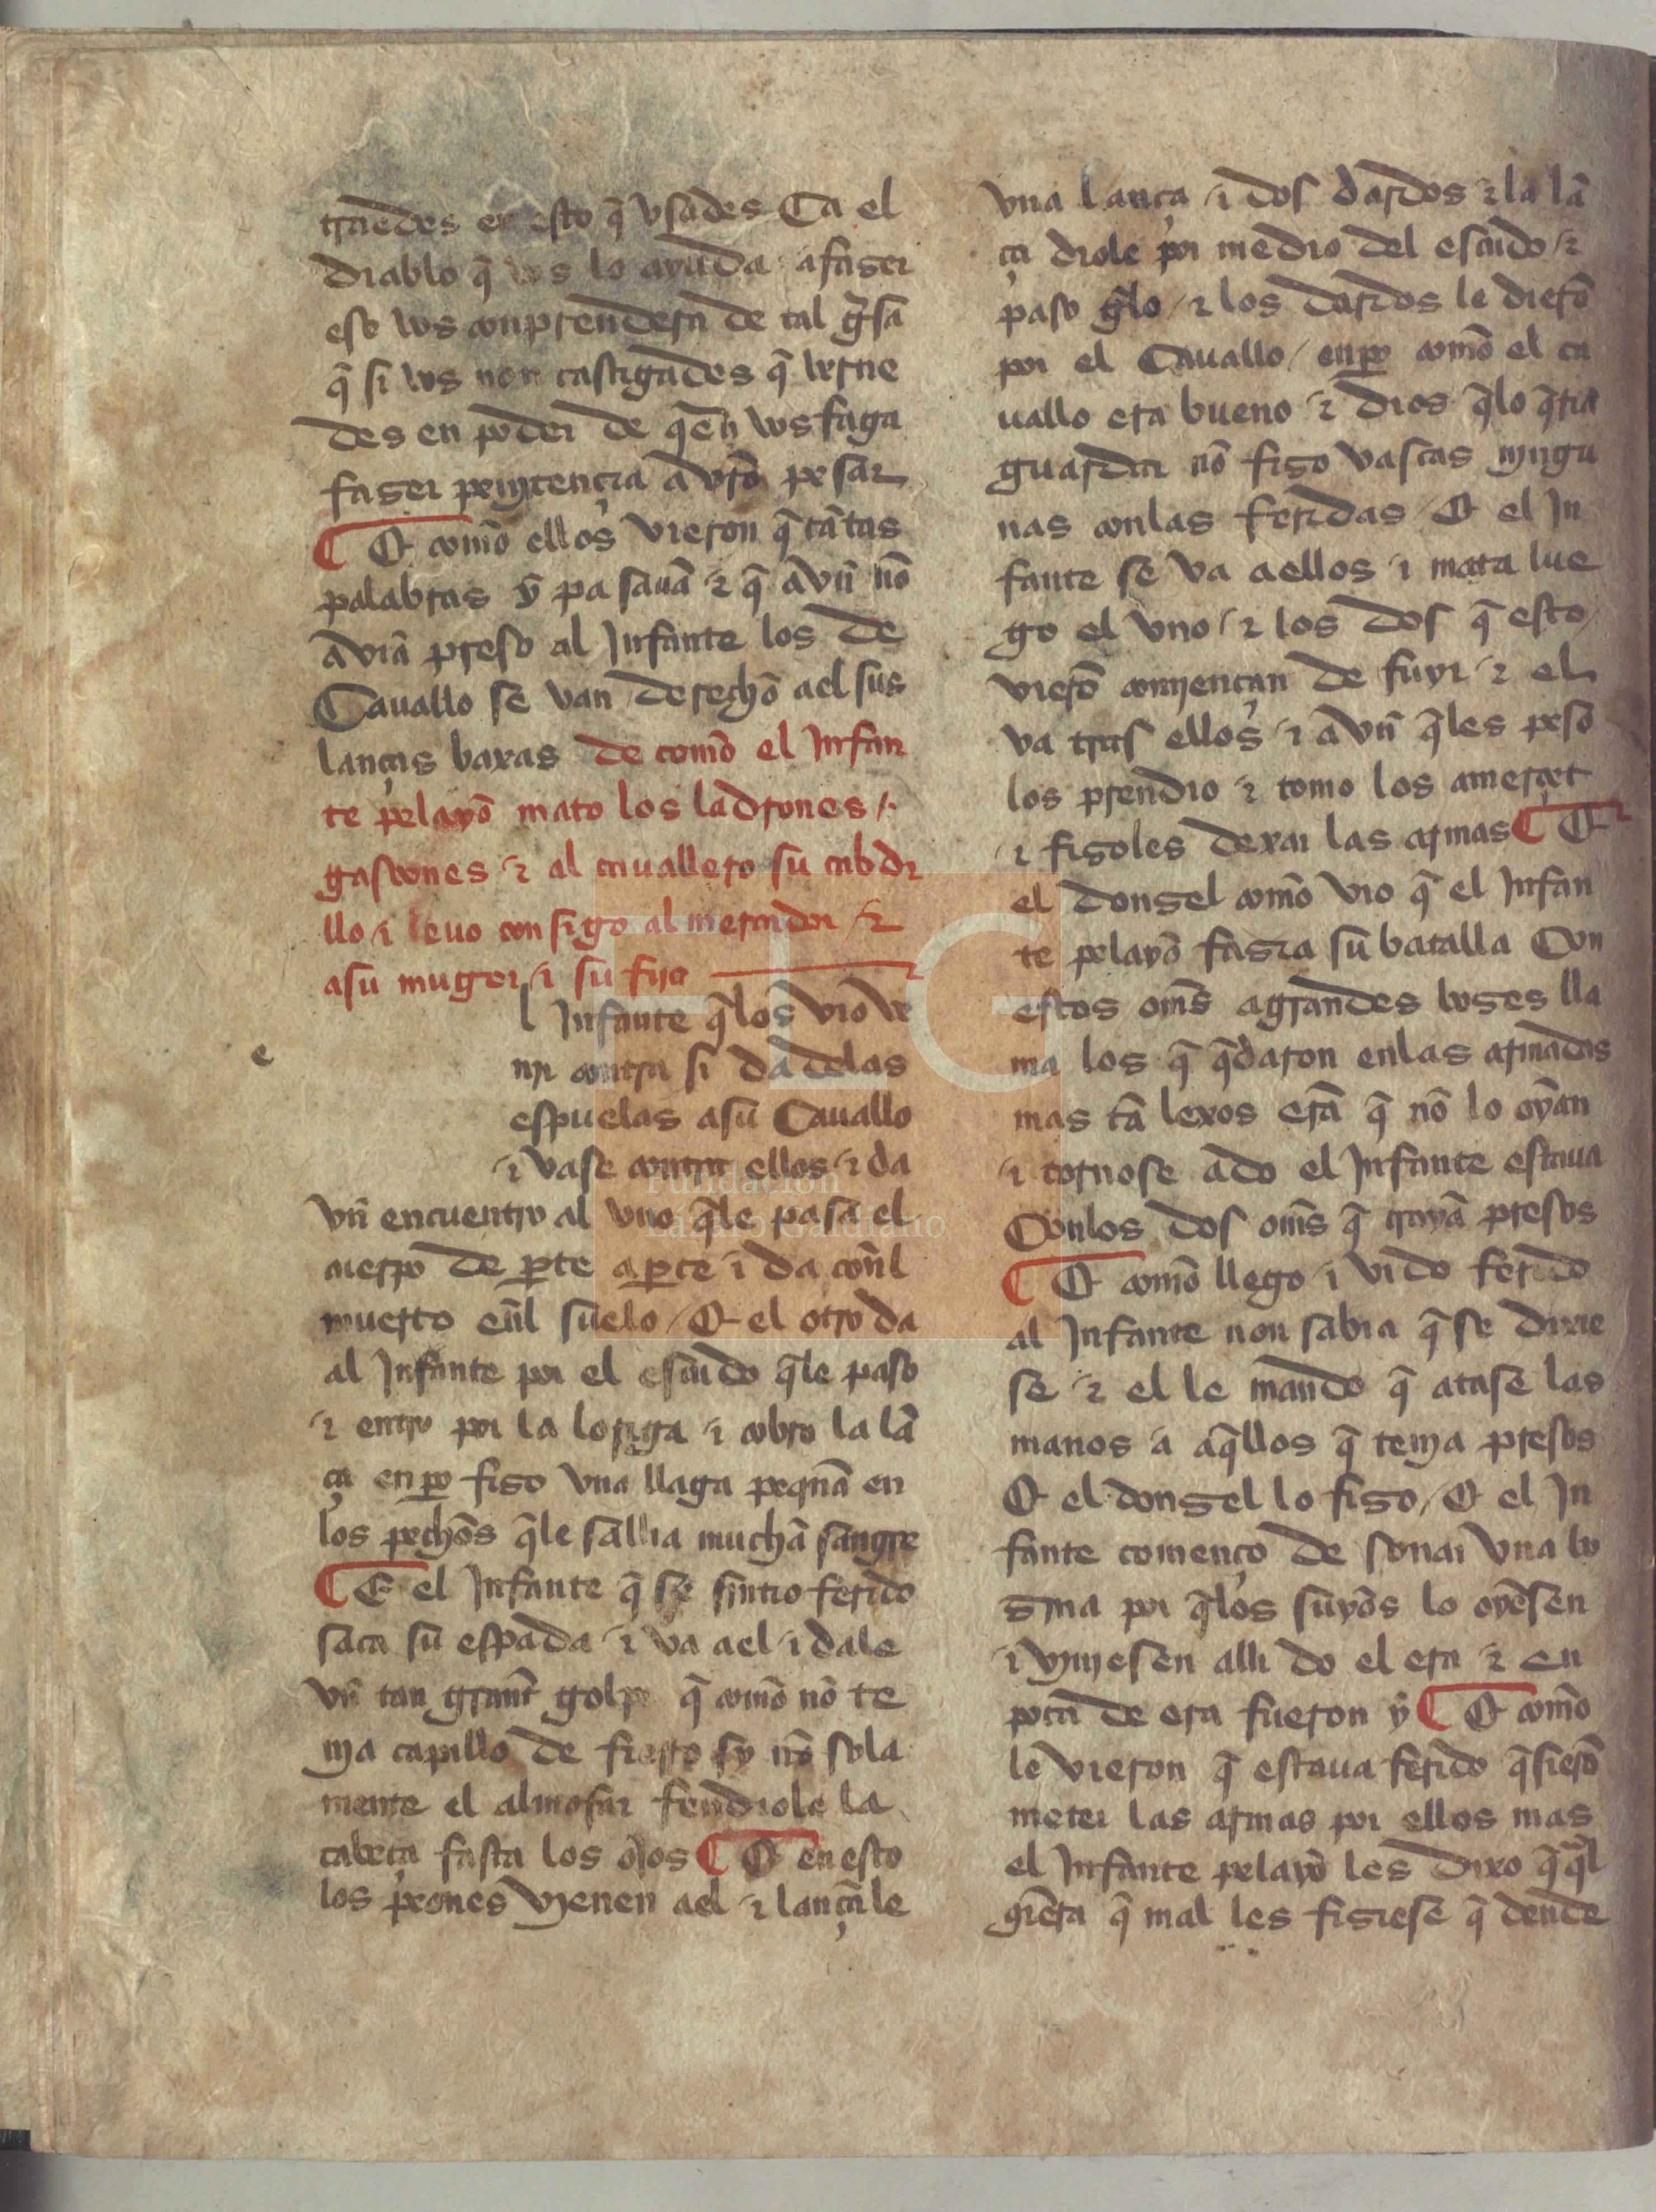 traedes en esto q̃ vsades Ca el
diablo q̃ vos lo ayuda a faser
eso vos conprendera de tal gͥsa
q̃ si vos non castigades q̃ verne
des en poder de qͥen vos faga
faser penjtençia a vr̃o pesar
¶ E como ellos vieron q̃ tãtas
palabras y̑ pasauã ⁊ q̃ avñ nõ
aviã preso al Infante los de
Cauallo se van derecho a el sus
lanças baxas de como el Infan
te pelayo mato los ladrones /.
gascones ⁊ al cauallero su cabdi
llo i leuo consigo al mercador ⁊
a su muger i su fijo
l Infante q̃ los vio ve
e
njr contra si da delas
espuelas a su Cauallo
i vase contra ellos ⁊ da
vñ encuentro al vno q̃le pasa el
cuerpo de ꝑte a ꝑte i da conl̃
muerto enl̃ suelo / E el otro da
al Infante por el escudo q̃le paso
⁊ entro por la loriga i cobro la lã
ça enꝑo fiso vna llaga peqñã en
los pechos q̃le sallia mucha sangre
¶ E el Infante q̃ se sintio ferido
saca su espada ⁊ va a el i dale
vñ tan grant golpe q̃ como nõ te
nja capillo de fierro sy nõ sola
mente el almofar fendiole la
cabeça fasta los ojos ¶ E en esto
los peones vjenen a el ⁊ lançãle
vna lança i dos dardos ⁊ la lã
ça diole por medio del escudo ⁊
paso gelo / ⁊ los dardos le dierõ
por el Cauallo / enꝑo como el ca
uallo era bueno ⁊ dios q̃lo q̃ria
guardar nõ fiso vascas njngu
nas conlas feridas / E el In
fante se va a ellos i mata lue
go el vno / ⁊ los dos q̃ esto
vierõ comjençan de fuyr ⁊ el
va tras ellos ⁊ avñ q̃les peso
los prendio ⁊ tomo los a merçet
⁊ fisoles dexar las armas ¶ E
el donsel como vio q̃ el Infan
te pelayo fasia su batalla Con
estos om̃s a grandes boses lla
ma los q̃ q̃daron enlas armadas
mas tã lexos erã q̃ nõ lo oyan
i tornose ado el Infante estaua
Conlos dos om̃s q̃ trayã presos
¶ E como llego i vido ferido
al Infante non sabia q̃ se dixie
se ⁊ el le mando q̃ atase las
manos a aq̃llos q̃ tenja presos
E el donsel lo fiso / E el In
fante començo de sonar vna bo
sina por q̃los suyos lo oyesen
i vjnjesen alli do el era ⁊ en
poca de ora fueron y̑ ¶ E como
le vieron q̃ estaua ferido q̃sierõ
meter las armas por ellos mas
el Infante pelayo les dixo q̃ q̃l
gͥera q̃ mal les fisiese q̃ dende